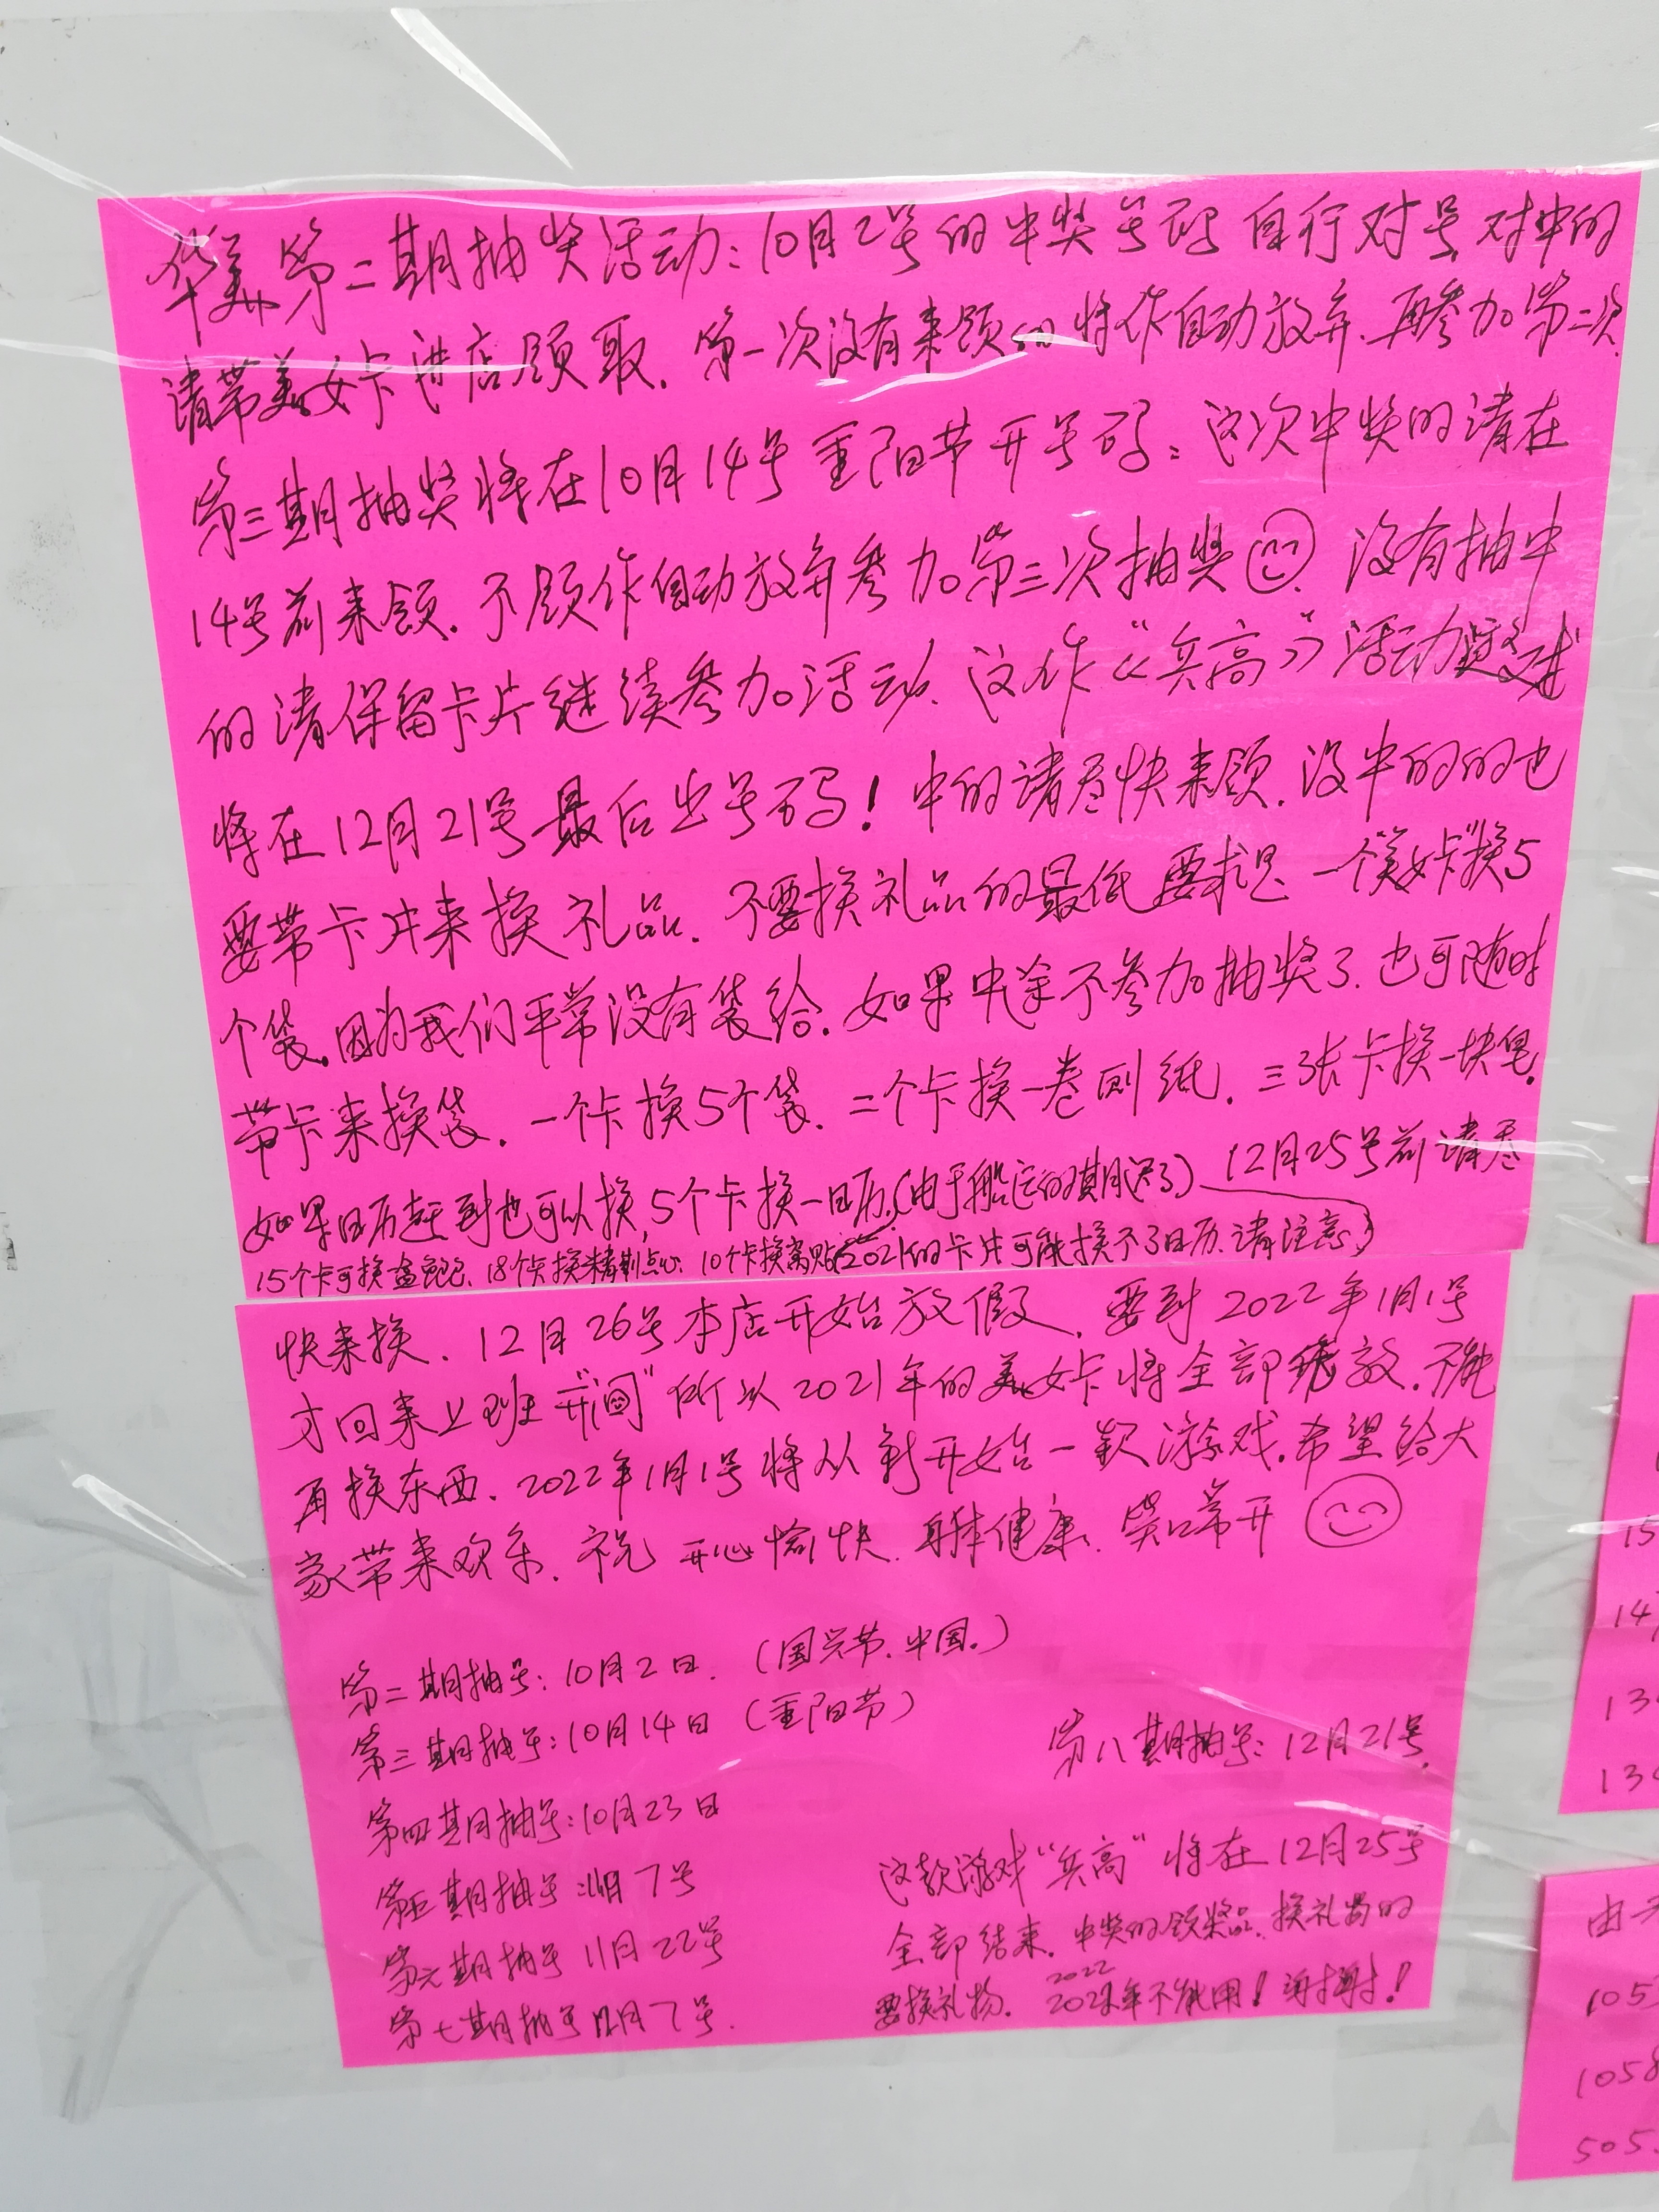 华美第二期抽奖活动:10月2号的中奖号码 自行对号 对中的
请带美女卡进店领取. 第一次没有来领的将作自动放弃. 再参加第二次.
第三期抽奖将在10月14号重阳节开号码: 这次中奖的请在
14号前来领. 不领作自动放弃参加第三次抽奖 没有抽中
的请保留卡片继续参加活动. 这作《“兵高”》活动
将在12月21号最后出号码! 中的请尽快来领. 没中的的也
要带卡片来换礼品. 不要换礼品的最低要求是 一个“美女卡”换5
个袋. 因为我们平常没有袋给. 如果中途不参加抽奖了. 也可随时
带卡来换袋. 一个卡换5个袋. 二个卡换一卷厕纸. 三张卡换一块皂.
如果日历赶到也可以换, 5个卡换一日历.(由于船运的期迟了) 12月25号前请尽
15个卡可换 18个卡换精制点心. 10个卡换 2021的卡片可能换不了日历. 请注意)
快来换. 12月26号本店开始放假. 要到2022年1月1号
才回来上班“开门” 所以2021年的美女卡将全部 不能
再换东西. 2022年1月1号将从新开始一款游戏. 希望给大
家带来欢乐. 祝 开心愉快. 身体健康. 笑口常开
第二期抽号: 10月2日. (国庆节. 中国.)
第三期抽号: 10月14日 (重阳节)
第八期抽号: 12月21号.
第四期抽号: 10月23日
第五期抽号: 11月7号
第六期抽号 11月22号
第七期抽号 12月7号.
这款游戏“兵高”将在12月25号
全部结束. 中奖的领奖品. 换礼物的
要换礼物. 2022年不能用! 谢谢!
15
14
13
13
由
105
1058
505.